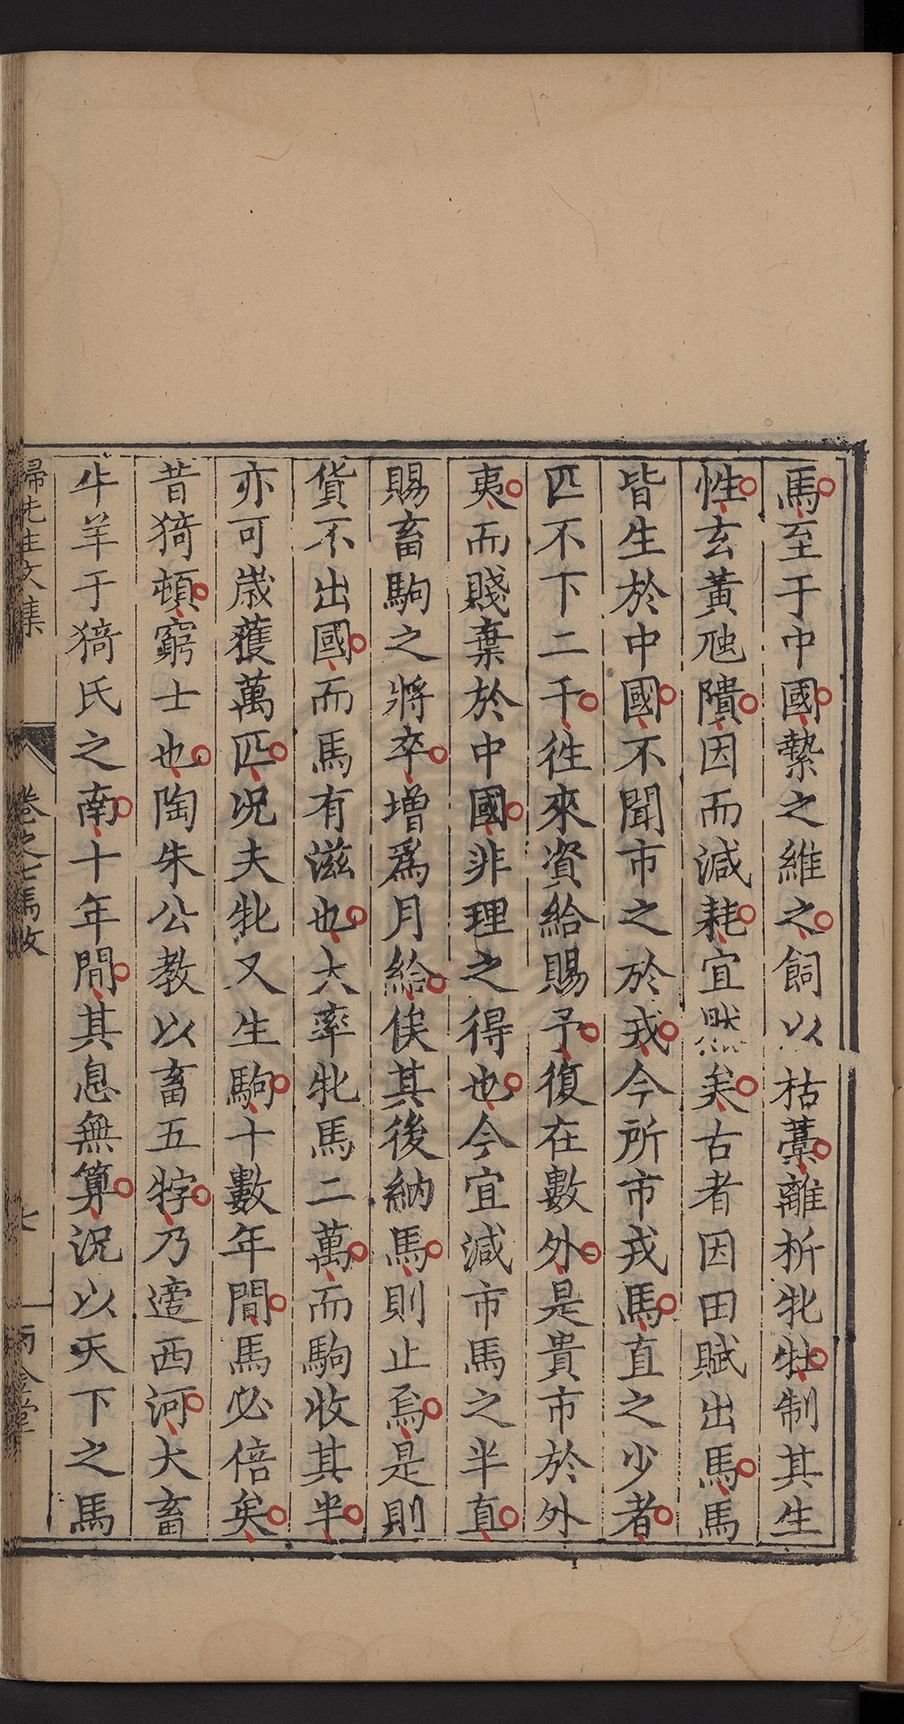 馬至于中國縶之維之飼以枯藁離析牝牡制其生
性玄黃虺隤因而減耗宜然矣古者因田賦出馬馬
皆生於中國不聞市之於戎今所市戎馬直之少者
匹不下二千徃來資給賜予復在數外是貴市於外
夷而賤棄於中國非理之得也今宜減市馬之半直
賜畜駒之將卒增爲月給俟其後納馬則止焉是則
貨不出國而馬有滋也大率牝馬二萬而駒收其半
亦可歲獲萬匹况夫牝又生駒十數年間馬必倍矣
昔猗頓窮士也陶朱公教以畜五牸乃適西河大畜
牛羊于猗氏之南十年間其息無算況以天下之馬
歸先生文集
卷之七馬政
七
雨金堂